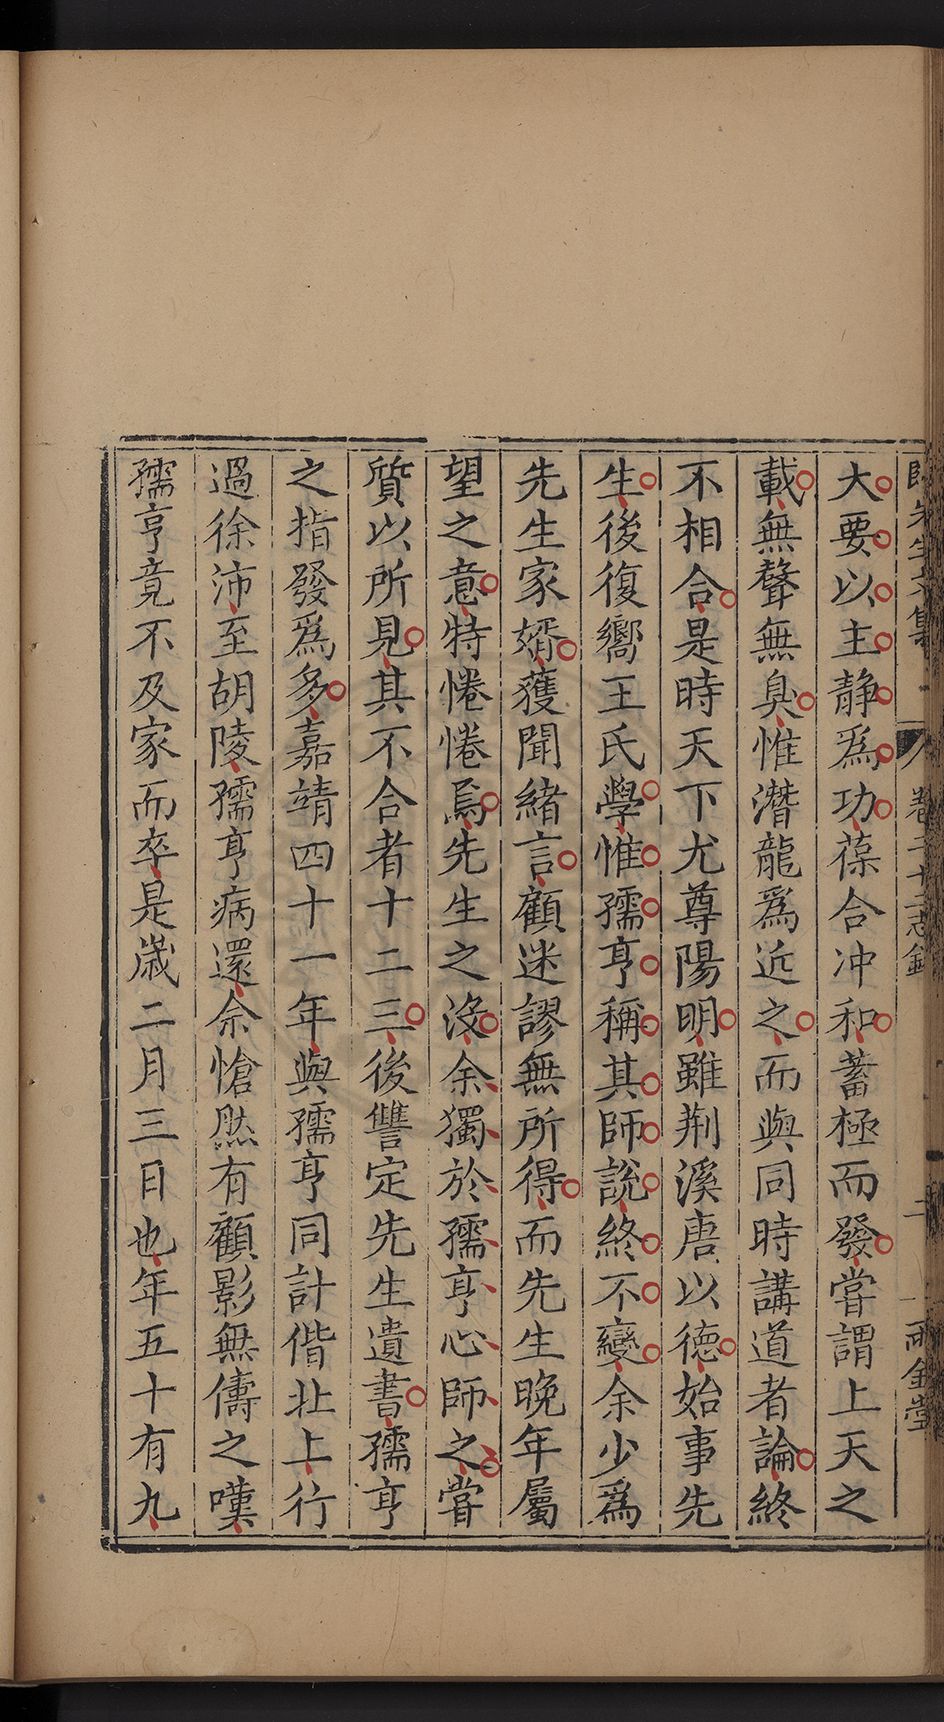 大要以主静爲功葆合冲和蓄極而發嘗謂上天之
載無聲無臭惟潛龍爲近之而與同時講道者論終
不相合是時天下尤尊陽明雖荆溪唐以德始事先
生後復嚮王氏學惟孺亨稱其師說終不變余少爲
先生家婿獲聞緒言顧迷謬無所得而先生晚年屬
望之意特惓惓焉先生之沒余獨於孺亨心師之嘗
質以所見其不合者十二三後讐定先生遺書孺亨
之指發爲多嘉靖四十一年與孺亨同計偕北上行
過徐沛至胡陵孺亨病還余愴然有顧影無儔之嘆
孺亨竟不及家而卒是歲二月三日也年五十有九